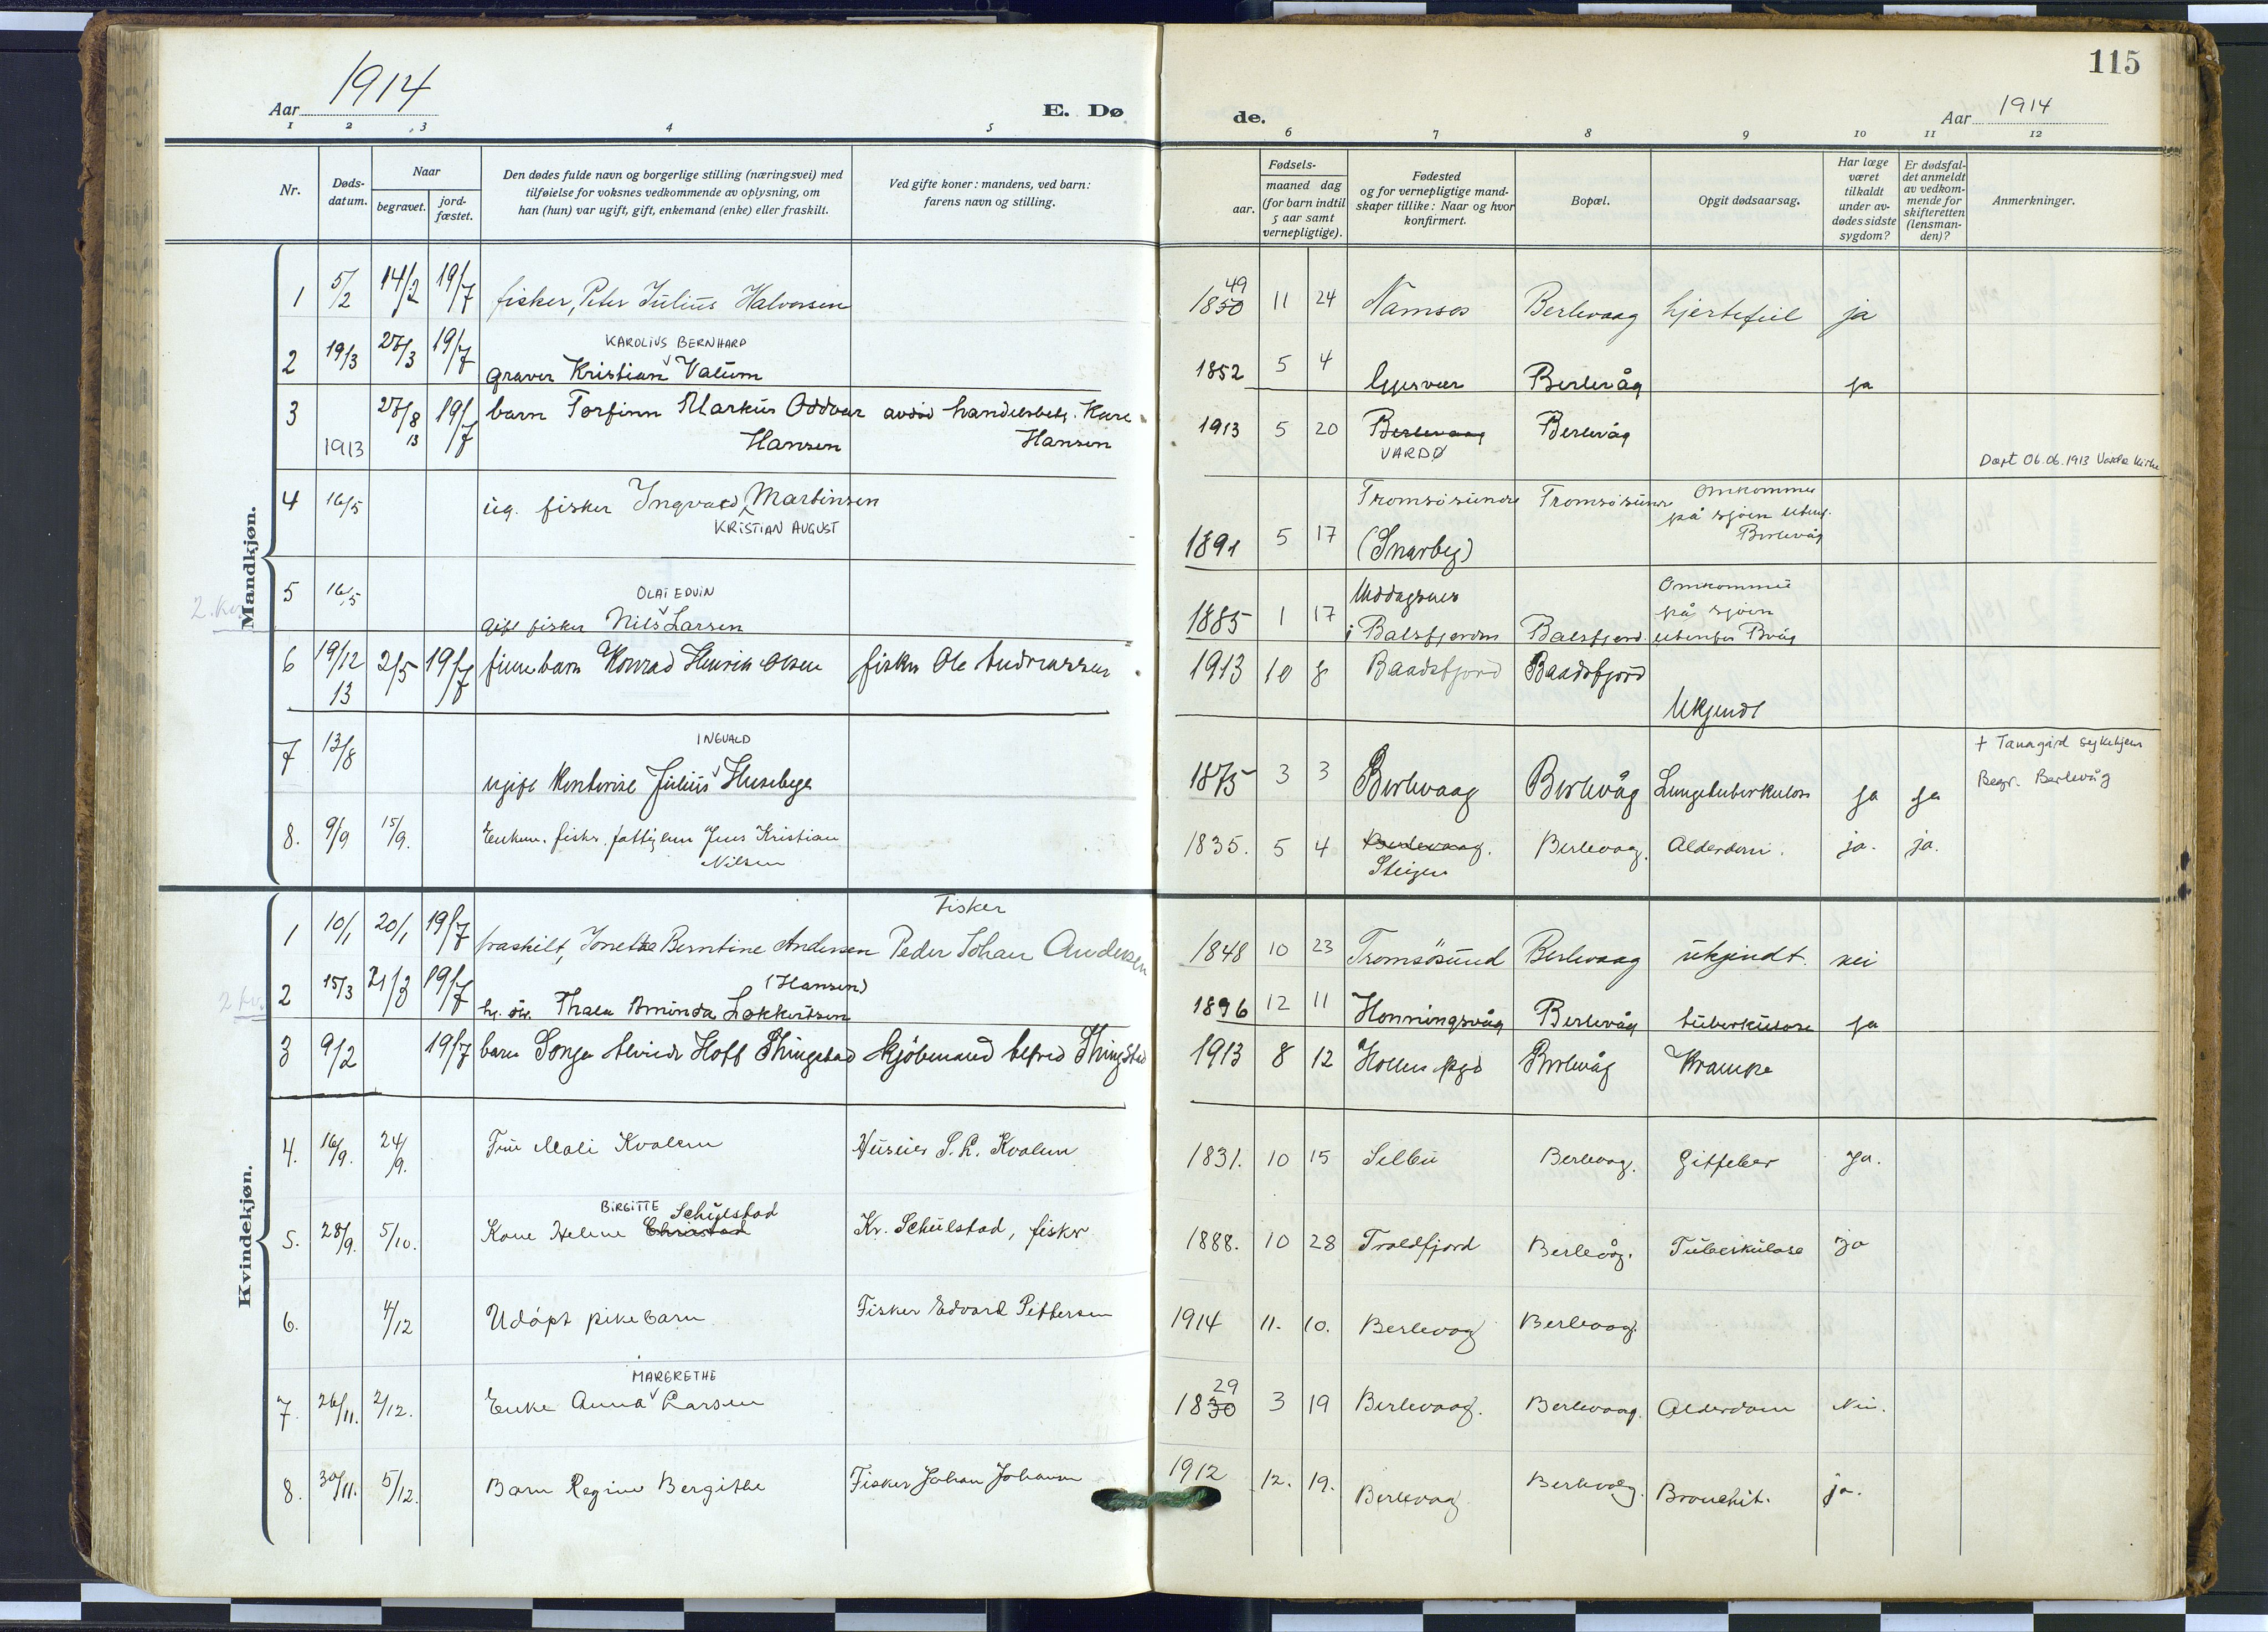 115
Aar 1914
E. Døde.
Aar 1914
1 2 3 4 5 6 7 8 9 10 11 12
Nr.
Døds-datum.
Naar
begravet.
jord-fæstet.
Den dødes fulde navn og borgerlige stilling (næringsvei) med
tilføielse for voksnes vedkommende av oplysning, om
han (hun) var ugift, gift, enkemand (enke) eller fraskilt.
Ved gifte koner: mandens, ved barn:
farens navn og stilling.
Fødsels-
aar.
maaned dag
(for barn indtil
5 aar samt
vernepligtige).
Fødested
og for vernepligtige mand-
skaper tillike: Naar og hvor
konfirmert.
Bopæl.
Opgit dødsaarsag.
Har læge
været
tilkaldt
under av-
dødes sidste
sygdom?
Er dødsfal-
det anmeldt
av vedkom-
mende for
skifteretten
(lensman-
den)?
Anmerkninger.
Mandkjøn.
1 5/2 14/2 19/7 fisker, Peter Julius Halvorsen 1850 49 11 24 Namsos Berlevaag hjertefeil ja
KAROLIUS BERNHARD
2 19/3 27/3 19/7 graver Kristian Valum 1852 5 4 Gjesvær Berlevåg ja
3 1913 27/8 13 19/7 barn Torfinn Markus Oddvar Hansen avdød handelsbetj. Kare Hansen 1913 5 20 Berlevaag VARDØ Berlevåg
Døpt 06.06.1913 Vardø kirke
4 16/5 ug. fisker Ingvald Martinsen 1891 5 17 Tromsøsundet (Snarby) Tromsøsundet Omkommet på sjøen utenf. Berlevåg
KRISTIAN AUGUST
OLAI EDVIN
5 16/5 gift fisker Nils Larsen 1885 1 17 i Balsfjorden Balsfjord Omkommet på sjøen utenfor Bvåg
6 19/12 13 2/5 19/7 finnebarn Konrad Henrik Olsen fisker Ole Andreassen 1913 10 8 Baadsfjord Baadsfjord Ukjendt
INGVALD
7 13/8 ugift kontorist Julius Huseby 1875 3 3 Berlevaag Berlevåg Lungetuberkulose ja ja
† Tanagård sykehjem
Begr. Berlevåg
8. 9/9 15/9. Enkem. fisker. fattiglem Jens Kristian Nilsen 1835. 5 4 Berlevaag. Steigen Berlevaag. Alderdom. ja. ja.
Kvindekjøn.
1 10/1 20/1 19/7 fraskilt, Jonetta Berntine Andersen Fisker Peder Johan Andersen 1848 10 23 Tromsøsund Berlevaag ukjendt. nei
2 15/3 21/3 19/7 Thala Aminda Lokkertsen (Hansen) 1896 12 11 Honningsvåg Berlevåg tuberkulose ja
3 9/2 19/7 barn Sonja Hoff Thingstad kjøbmand Alfred Thingstad 1913 8 12 Berlevåg Krampe
4. 16/9. 24/9. Fru Mali Kvalum Huseier S. L. Kvalum 1831. 10 15 Selbu Berlevaag. Gitfeber Ja.
BIRGITTE Schulstad
5. 28/9. 5/10. Kone Helene Christad Kr. Schulstad, fisker 1888. 10 28 Troldfjord Berlevåg. Tuberkulose Ja
6. 4/12 Udøpt pikebarn Fisker Edvard Pettersen 1914 11. 10. Berlevaag Berlevaag.
MARGRETHE
7. 26/11. 2/12. Enke Anna Larsen 1830 29 3 19 Berlevaag. Berlevaag. Alderdom Nei.
8. 30/11. 5/12. Barn Regine Bergithe Fisker Johan Johansen 1912 12. 19. Berlevaag Berlevåg. Bronchit. ja.